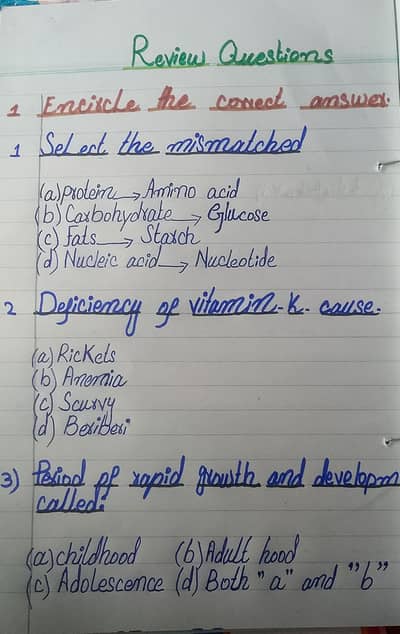 Review Questions
1 Encircle the correct answer.
1 Select the mismatched
(a) protein → Amino acid
(b) Carbohydrate → Glucose
(c) Fats → Starch
(d) Nucleic acid → Nucleotide
2 Deficiency of vitamin-K- cause.
(a) Rickets
(b) Anemia
(c) Scurvy
(d) Beriberi
3) Period of rapid growth and developm
called:
(a) childhood (b) Adult hood
(c) Adolescence (d) Both "a" and "b"